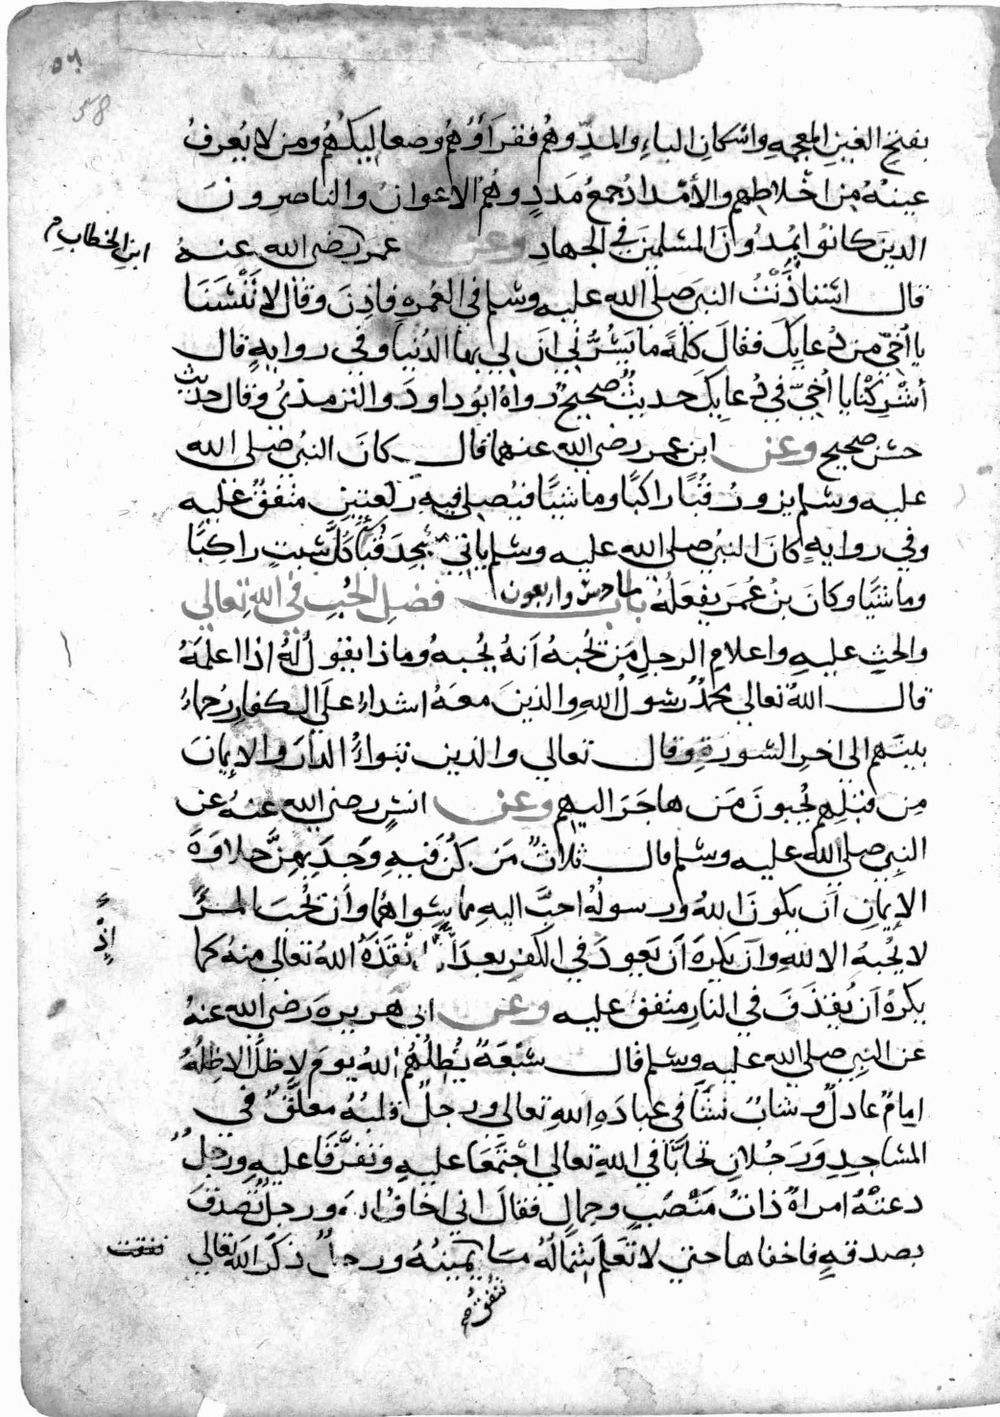 ٥٨
58
بفتح الغين المعجمه واسكان الباء والمدّ وهُم فقرآؤهُم وصعاليكهُم ومن لا يُعرفُ
عينهُ من اخلاطهم والأمْدادُ جمعُ مَددٍ وهُم الاعوان والناصرون
الذين كانوا يُمِدُّونَ المسلمين في الجهاد وعن عمر رضي الله عنهُ
ابن الخطاب
قال استأذَنْتُ النبي صلي الله عليه وسلم في العُمره فاذِنَ وقال لا تَنْسَنَا
يا أُخَيَّ من دُعايِكَ فقال كلمةً ما يَسُرُّني انّ لي بها الدُنيا وفي روايه قال
أشْرِكْنا يا أُخَيَّ في دُعايك حديثٌ صحيحٌ رواهُ ابُو داود والترمذيُ وقال حديث
حسن صحيح وعن ابن عمر رضي الله عنهما قال كان النبي صلي الله
عليه وسلم يزورُ قُبًا راكبًا وماشيًا فيُصلي فيه ركعتين متفق عليه
وفي روايه كان النبي صلي الله عليه وسلم ياتي مسجِدَ قُبًا كُلَّ سَبتٍ راكِبًا
وماشيًا وكان بنُ عُمَرَ يفعَلُهُ باب سادس واربعون فضل الحُب في الله تعالي
والحث عليه واعلام الرجل من يُحبهُ أنهُ يُحبهُ وماذا يقول لهُ اذا اعلمَهُ
قال اللهُ تعالي محمدٌ رسولُ الله والذين معهُ اشداءُ علي الكفار رُحماءُ
بينهم الي اخر السورة وقال تعالي والذين تبوّاءُ الدار والايمان
من قبلهم يُحبون مَن هاجَرَ اليهم وعن انسٍ رضي الله عنهُ عن
النبي صلي الله عليه وسلم قال ثلاثٌ مَن كُنّ فيه وجَدَ بهِنَّ حلاوَةَ
الإيمان أن يكون اللهُ ورسولُهُ احبَّ اليه مما سواهُما وأن يُحبَ المرءَ
لا يُحبهُ الا لله وأن يكرَهَ أن يعودَ في الكفر بعدَ انقذَهُ اللهُ تعالي منهُ كما
إذْ
يكرَهُ أن يُقذَفَ في النار متفق عليه وعن ابي هريره رضي الله عنهُ
عن النبي صلي الله عليه وسلم قال سبْعَةٌ يُظلُّهُم اللهُ يوم لا ظلَّ الا ظلُهُ
امامٌ عادلٌ وشابٌ نشأ في عبادَه الله تعالي ورجلٌ قلبُهُ معلّقٌ في
المساجِدِ وَرَجُلانِ تحابّا في الله تعالي اجْتَمَعَا عليهِ وتفرَّقَا عليهِ ورجلٌ
دعتْهُ امراةٌ ذاتُ مَنْصبٍ وجمالٍ فقال اني اخافُ الله ورجلٌ تصدّق
بصدقهٍ فاخفاها حتي لا تَعْلَمَ شمالُهُ ما يمينُهُ ورجلٌ ذكَرَ الله تعالي
تنفق